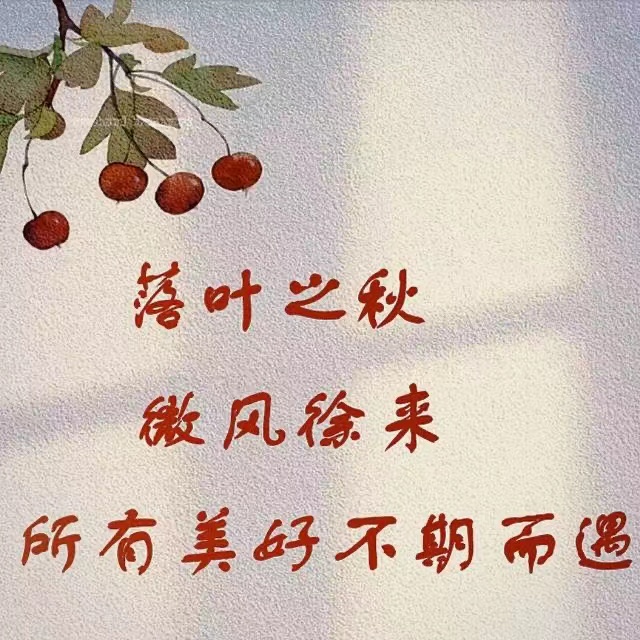 落叶之秋
微风徐来
所有美好不期而遇